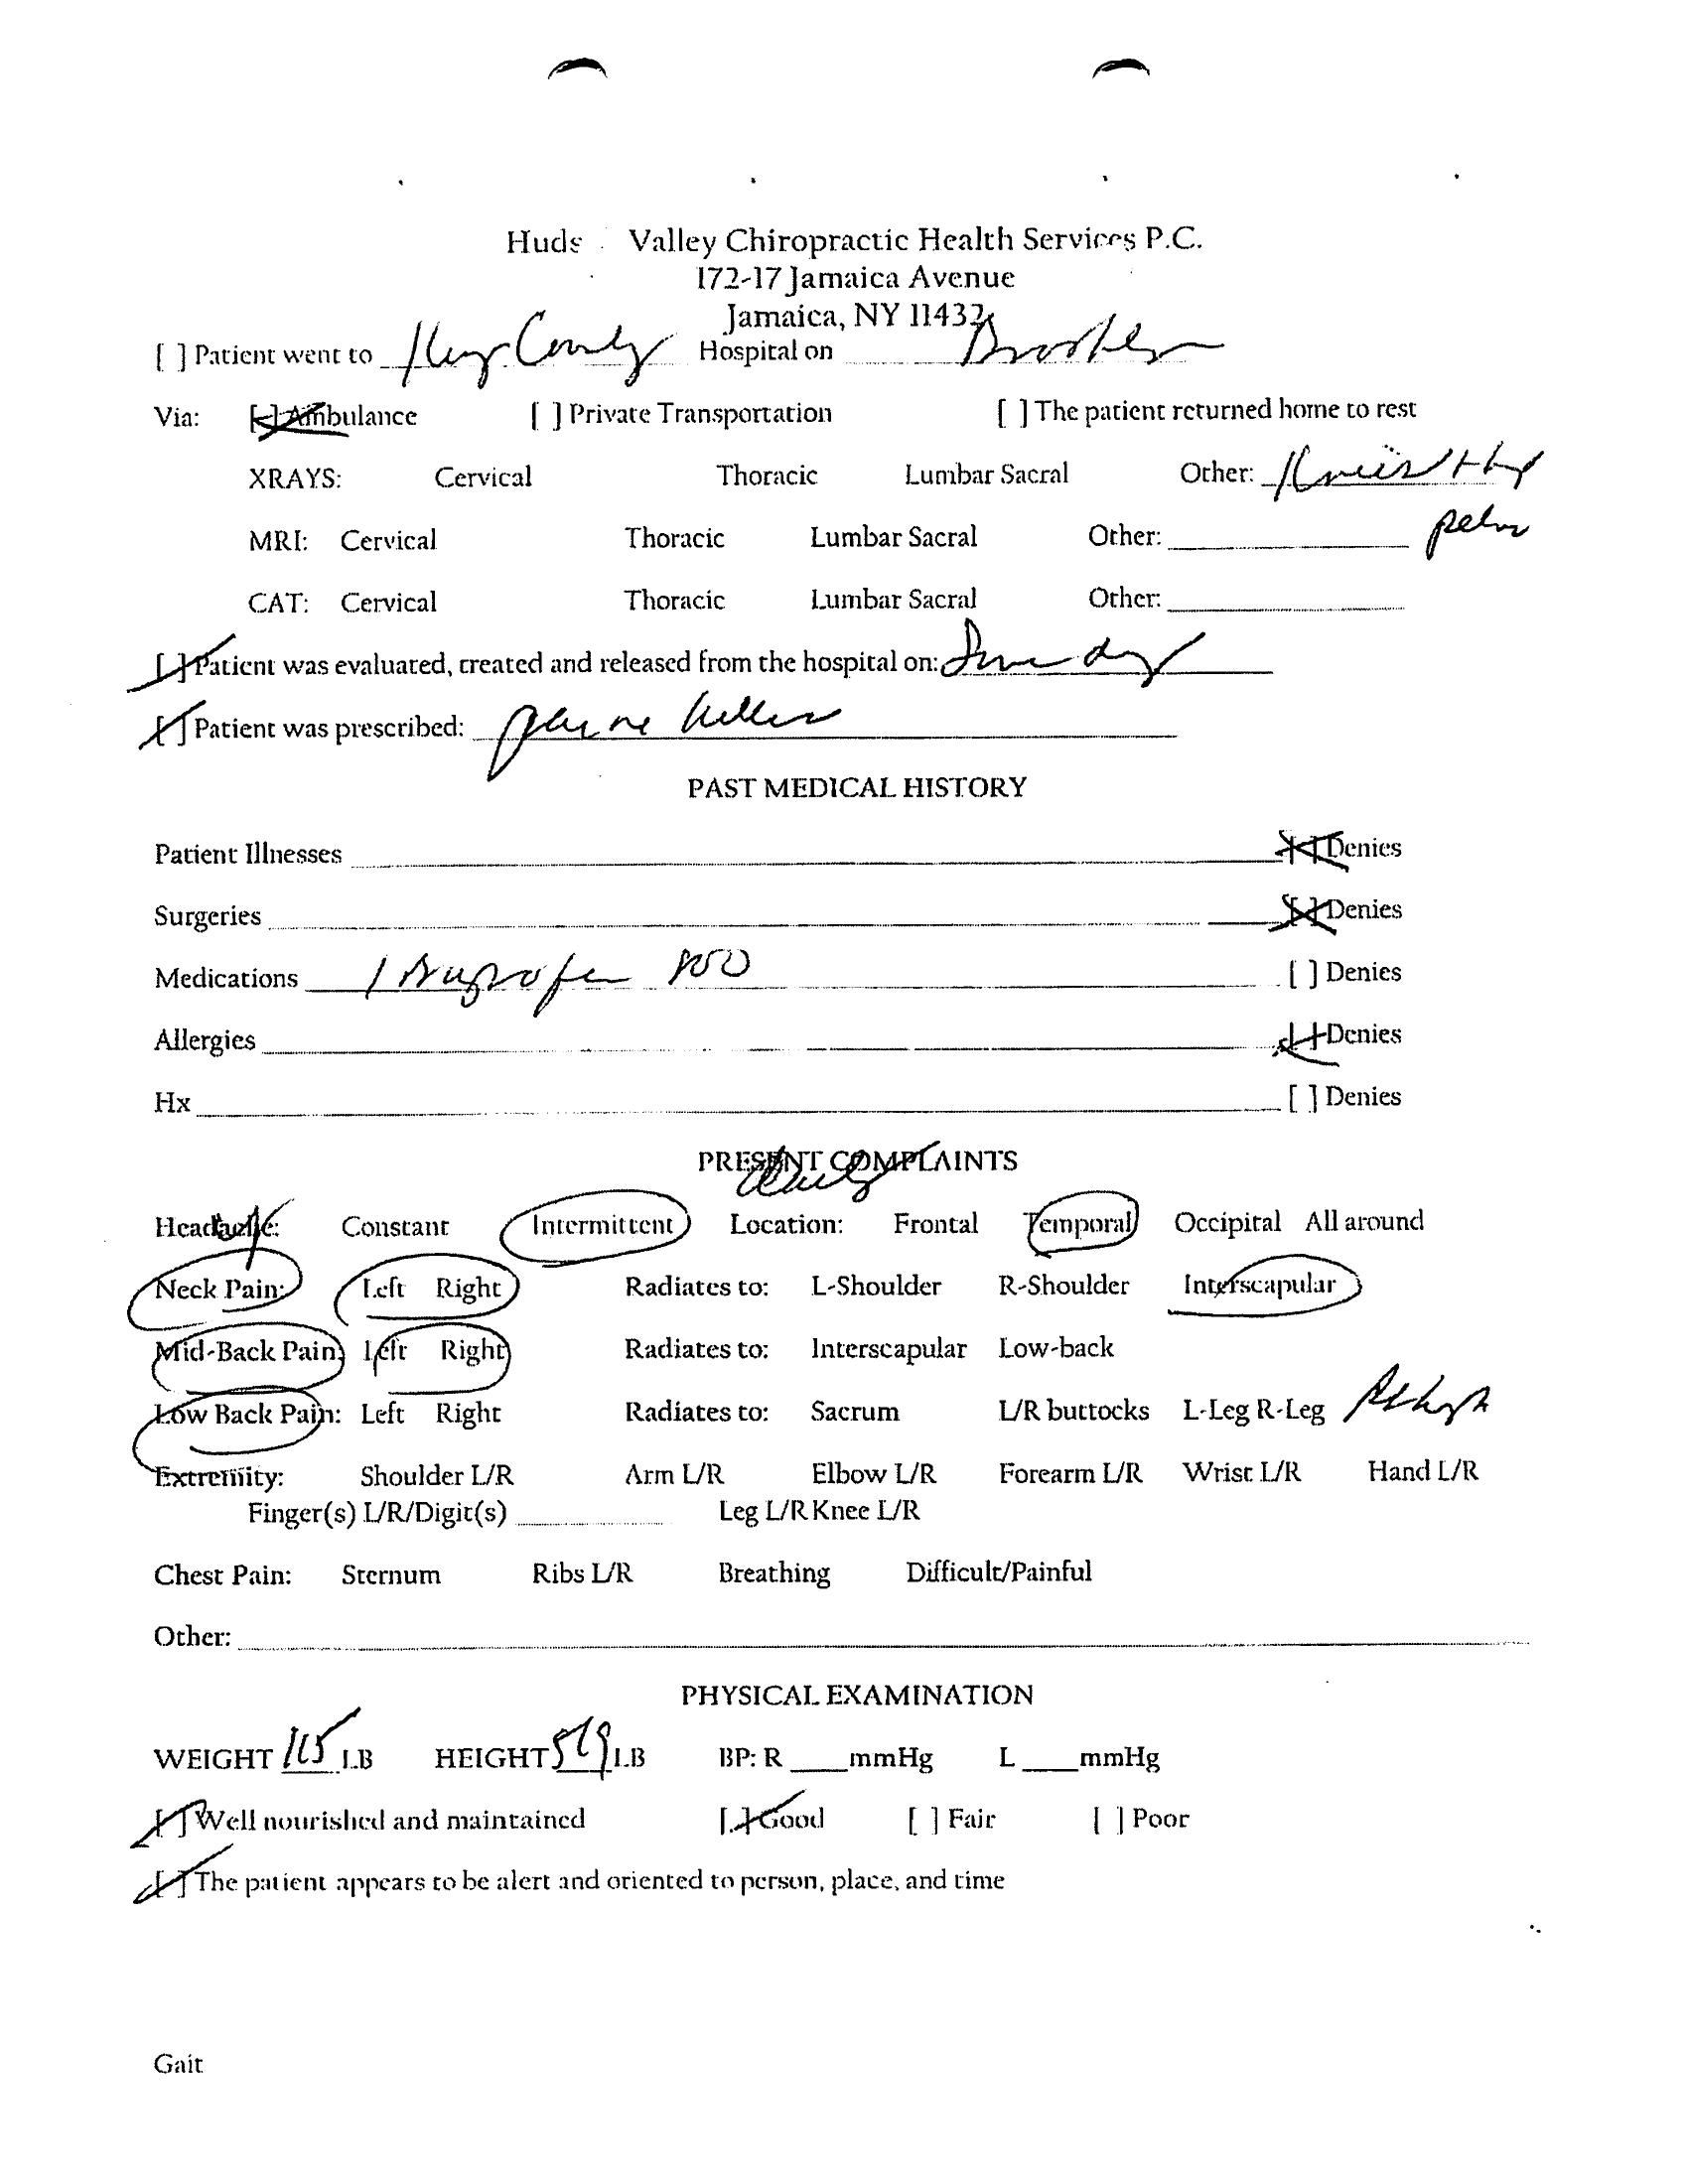 Huds Valley Chiropractic Health Services P.C.
172-17 Jamaica Avenue
Jamaica, NY 11432
[ ] Patient went to County Hospital on
Via: [ ] Ambulance [ ] Private Transportation [ ] The patient returned home to rest
XRAYS: Cervical Thoracic Lumbar Sacral Other:
MRI: Cervical Thoracic Lumbar Sacral Other:
CAT: Cervical Thoracic Lumbar Sacral Other:
[ ] Patient was evaluated, treated and released from the hospital on:
[ ] Patient was prescribed:
PAST MEDICAL HISTORY
Patient Illnesses [ ] Denies
Surgeries [ ] Denies
Medications Ibuprofen 800 [ ] Denies
Allergies [ ] Denies
Hx [ ] Denies
PRESENT COMPLAINTS
Headache: Constant Intermittent Location: Frontal Temporal Occipital All around
Neck Pain: Left Right Radiates to: L-Shoulder R-Shoulder Interscapular
Mid-Back Pain: Left Right Radiates to: Interscapular Low-back
Low Back Pain: Left Right Radiates to: Sacrum L/R buttocks L-Leg R-Leg
Extremity: Shoulder L/R Arm L/R Elbow L/R Forearm L/R Wrist L/R Hand L/R
Finger(s) L/R/Digit(s) Leg L/R Knee L/R
Chest Pain: Sternum Ribs L/R Breathing Difficult/Painful
Other:
PHYSICAL EXAMINATION
WEIGHT LB HEIGHT LB BP: R mmHg L mmHg
[ ] Well nourished and maintained [ ] Good [ ] Fair [ ] Poor
[ ] The patient appears to be alert and oriented to person, place, and time
Gait